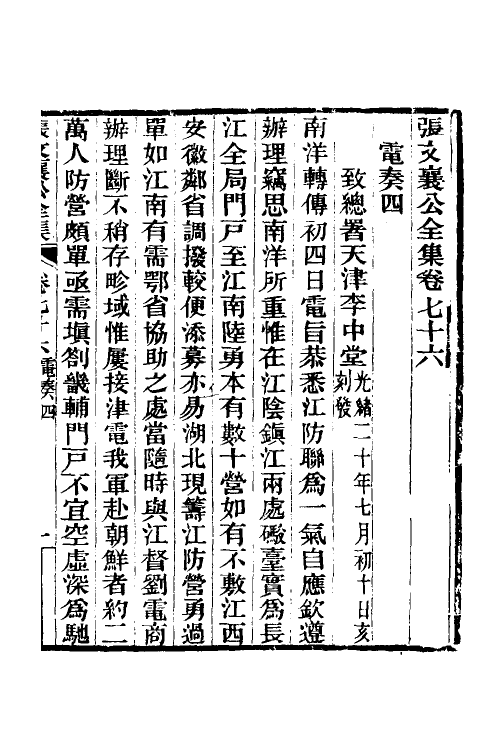 張文襄公全集卷七十六
電奏四
致總署天津李中堂光緒二十年七月初十日亥刻發
南洋轉傳初四日電旨恭悉江防聯為一氣自應欽遵
辦理竊思南洋所重惟在江陰鎮江兩處礮臺實為長
江全局門戶至江南陸勇本有數十營如有不敷江西
安徽鄰省調撥較便添募亦易湖北現籌江防營勇過
單如江南有需鄂省協助之處當隨時與江督劉電商
辦理斷不稍存畛域惟屢接津電我軍赴朝鮮者約二
萬人防營頗單亟需填劄畿輔門戶不宜空虛深為馳
張文襄公全集 卷七十六 電奏四 一